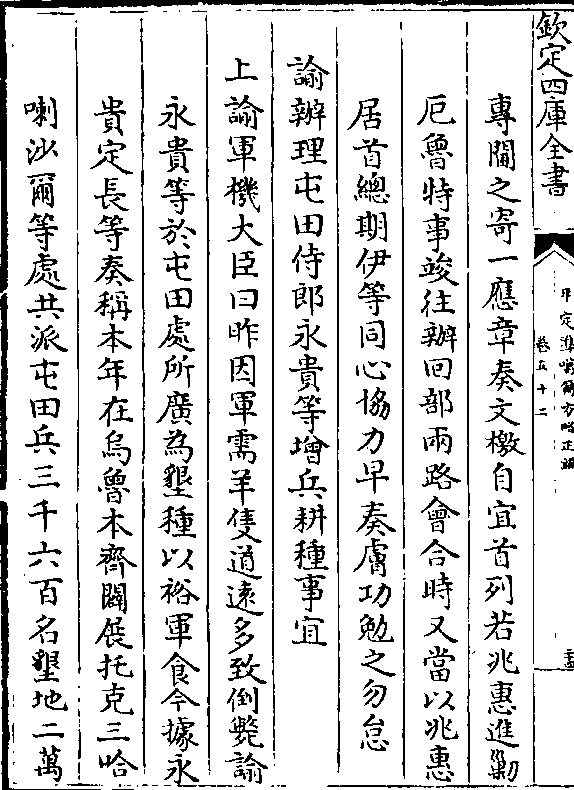 欽定四庫全書
平定準噶爾方略正編
卷五十二
專閫之寄一應章奏文檄自宜首列若兆惠進勦
厄魯特事竣往辦回部兩路會合時又當以兆惠
居首總期伊等同心協力早奏膚功勉之勿怠
諭辦理屯田侍郎永貴等增兵耕種事宜
上諭軍機大臣曰昨因軍需羊隻道遠多致倒斃諭
永貴等於屯田處所廣為墾種以裕軍食今據永
貴定長等奏稱本年在烏魯木齊闢展托克三哈
喇沙爾等處共派屯田兵三千六百名墾地二萬